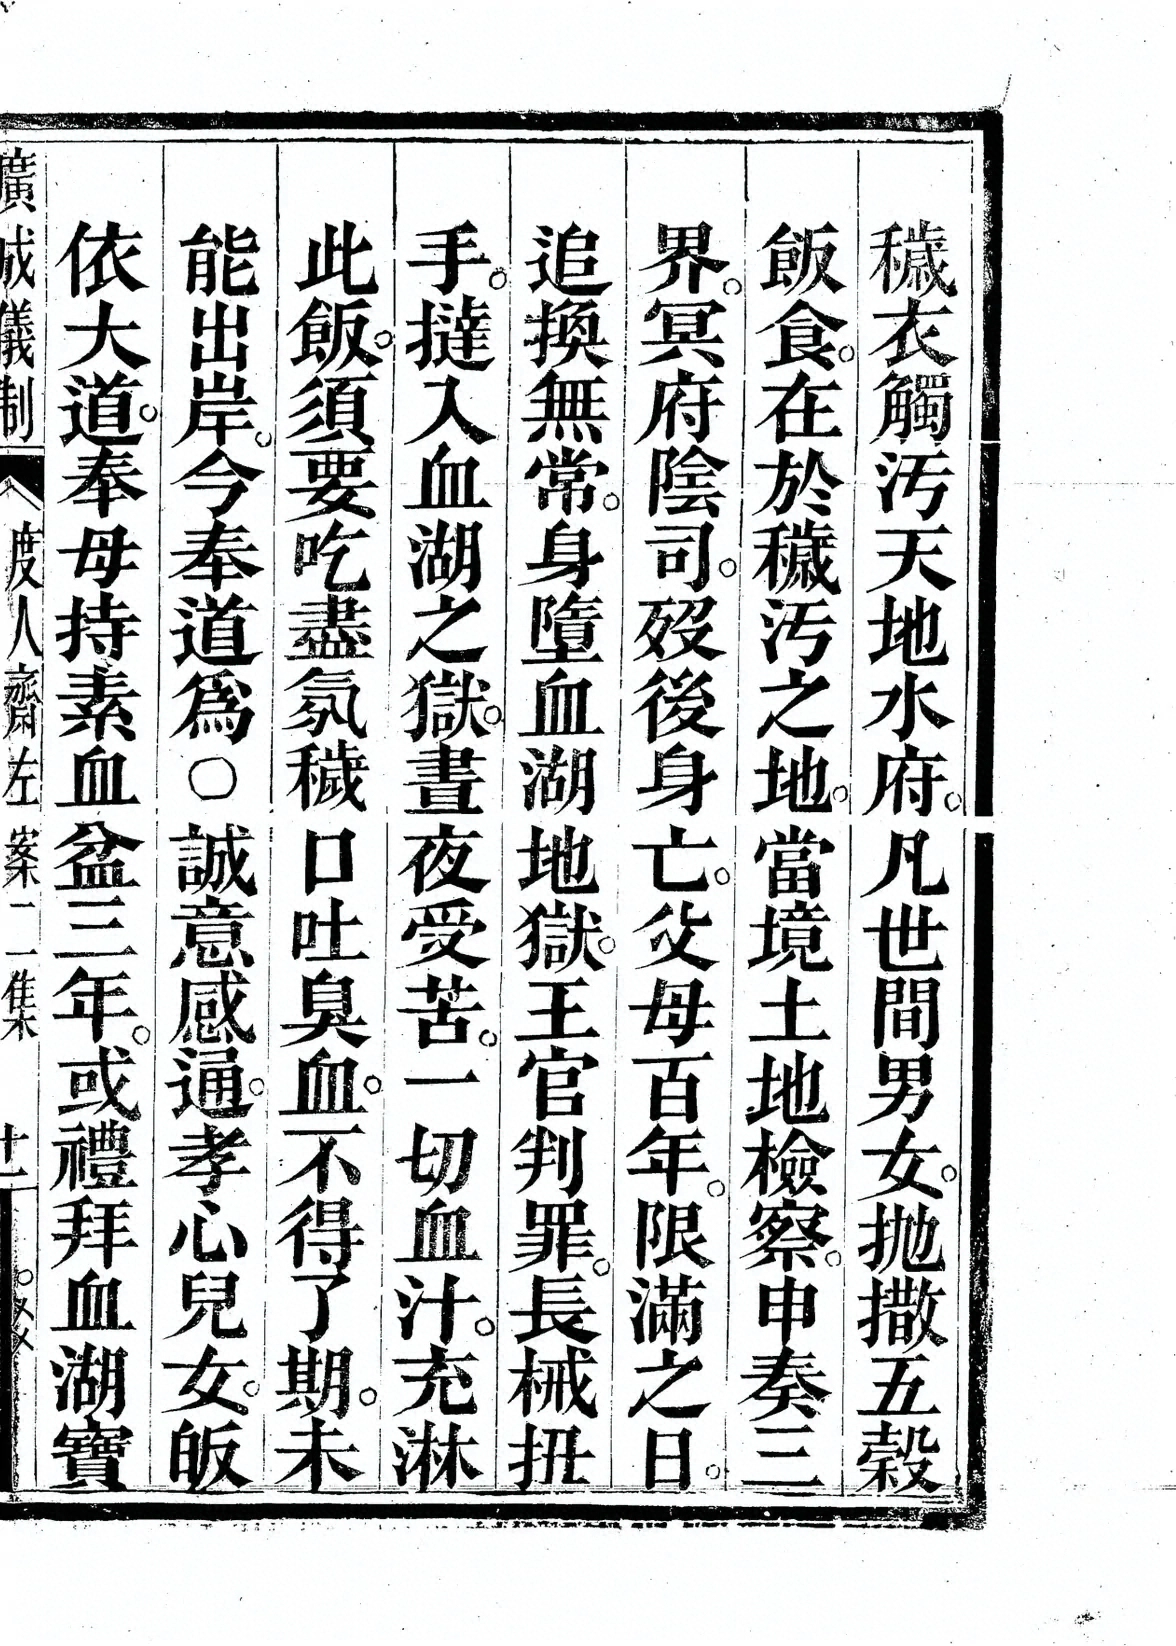 穢衣觸汚天地水府。凡世間男女。抛撒五穀
飯食。在於穢汚之地。當境土地檢察。申奏三
界。冥府陰司。歿後身亡。父母百年。限滿之日。
追換無常。身墮血湖地獄。王官判罪。長械扭
手。撻入血湖之獄。晝夜受苦。一切血汁。充淋
此飯。須要吃盡氛穢口吐臭血。不得了期。未
能出岸。今奉道爲○誠意感通。孝心兒女。皈
依大道。奉母持素血盆三年。或禮拜血湖寶
廣成儀制
度人齋左案二二集
十一